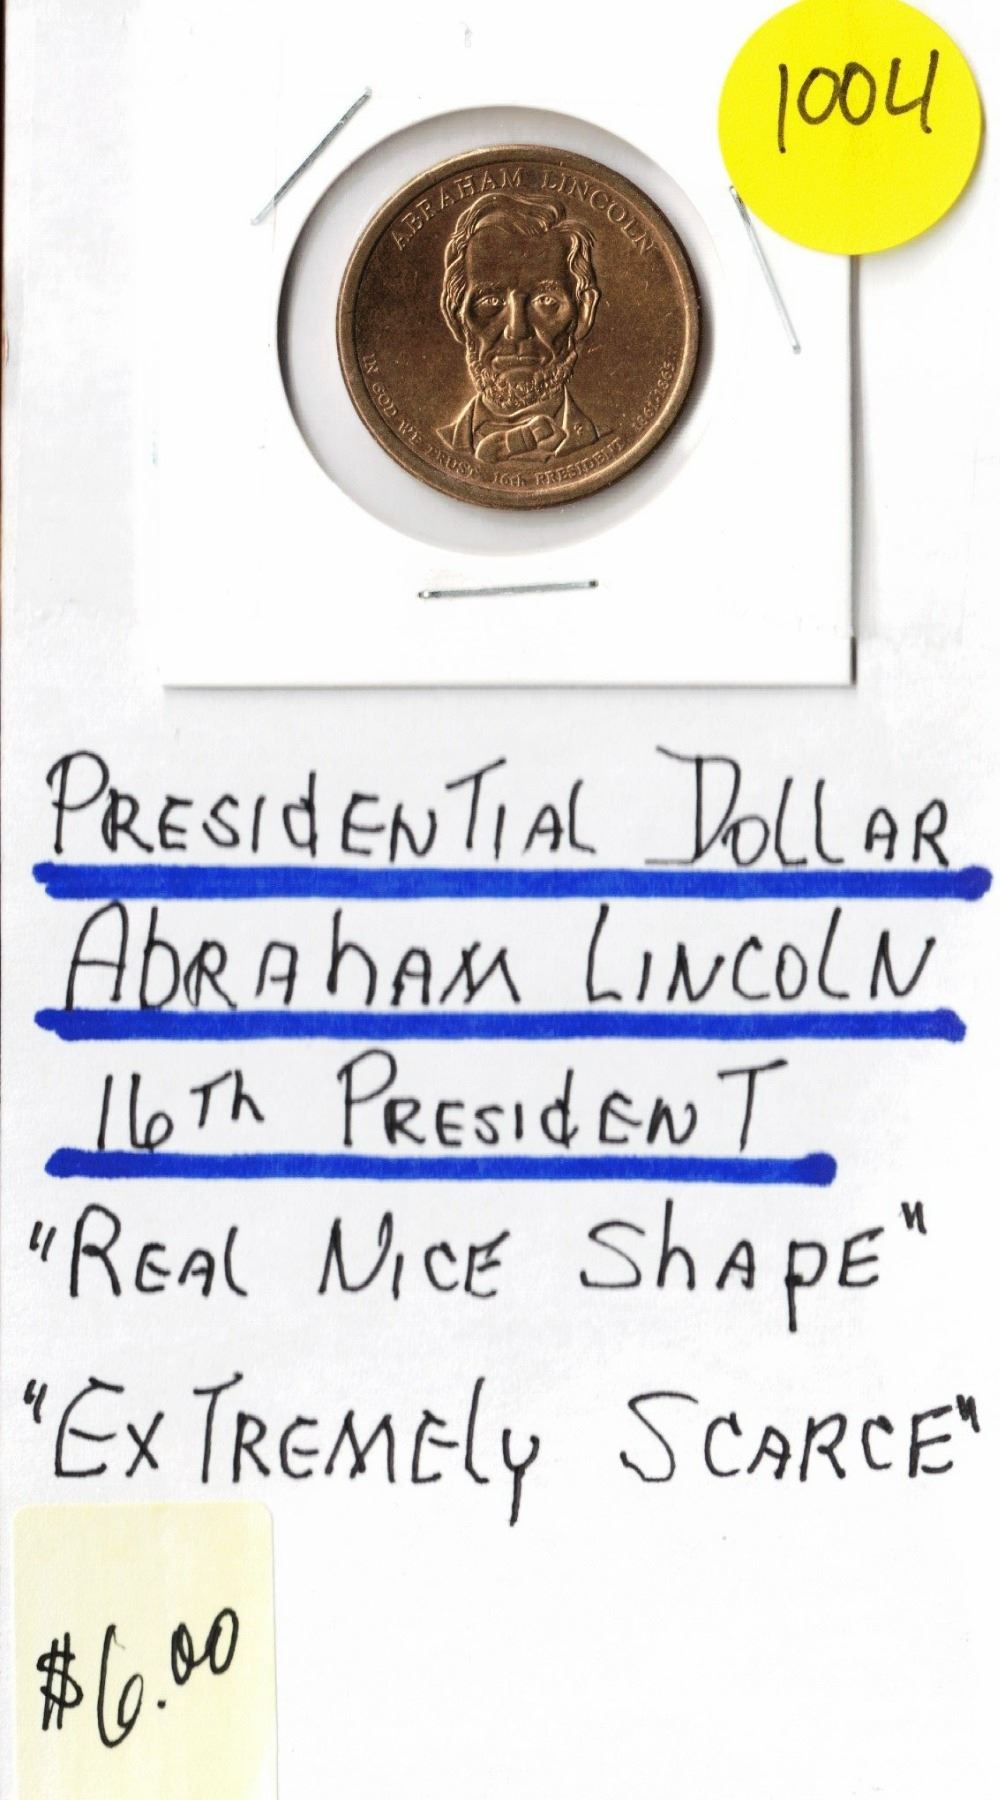 1004
ABRAHAM LINCOLN
IN GOD WE TRUST 16th PRESIDENT 1861-1865
PRESIdENTIAL DOLLAR
AbRAhAM LINCOLN
16Th PRESIdENT
"REAL NICE ShApE"
"ExTREMEly SCARCE"
$6.00